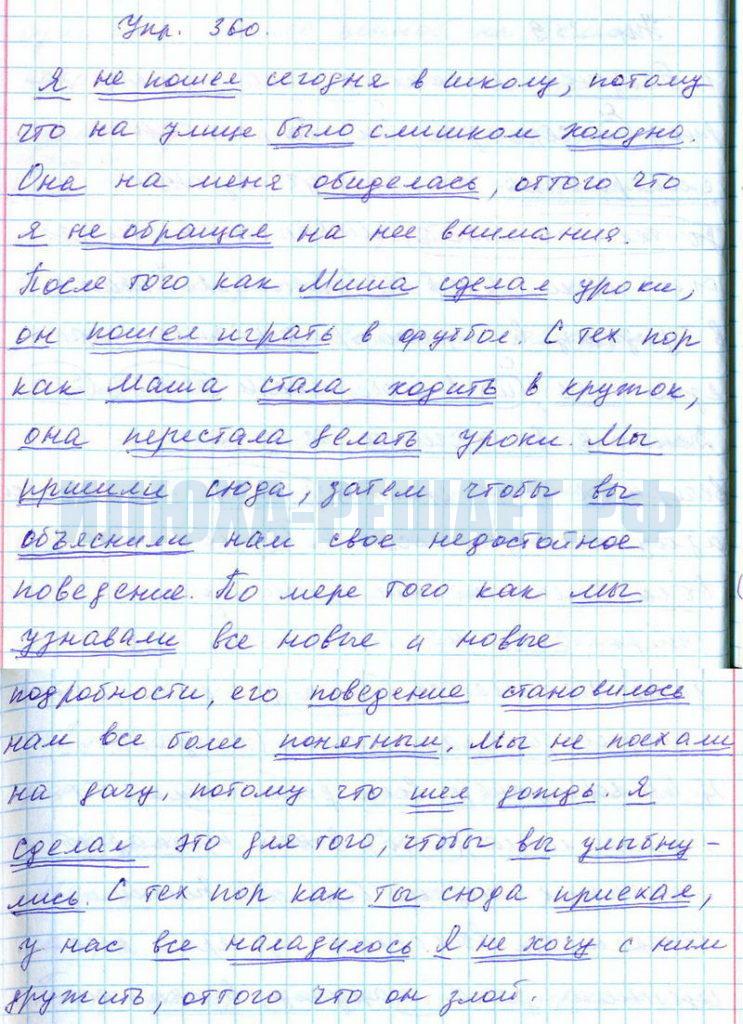 Упр. 360.
Я не пошел сегодня в школу, потому
что на улице было слишком холодно.
Она на меня обиделась, оттого что
я не обращал на нее внимания.
После того как Миша сделал уроки,
он пошел играть в футбол. С тех пор
как Маша стала ходить в кружок,
она перестала делать уроки. Мы
пришли сюда, затем чтобы вы
объяснили нам свое недостойное
поведение. По мере того как мы
узнавали все новые и новые
подробности, его поведение становилось
нам все более понятным. Мы не поехали
на дачу, потому что шел дождь. Я
сделал это для того, чтобы вы улыбну-
лись. С тех пор как ты сюда приехал,
у нас все наладилось. Я не хочу с ним
дружить, оттого что он злой.